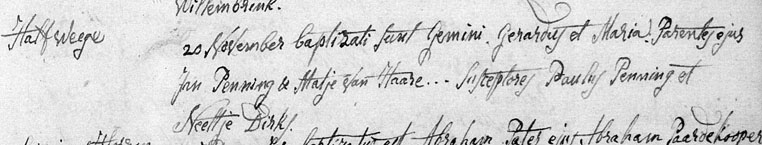 Willembrink.
Halfweege
20 November baptizati sunt Gemini. Gerardus et Maria. Parentes ejus
Jan Penning & Matje van Haare... Susceptores Paulus Penning et
Neeltje Dirks.
baptizatus est Abraham Pater ejus Abraham Paardekooper